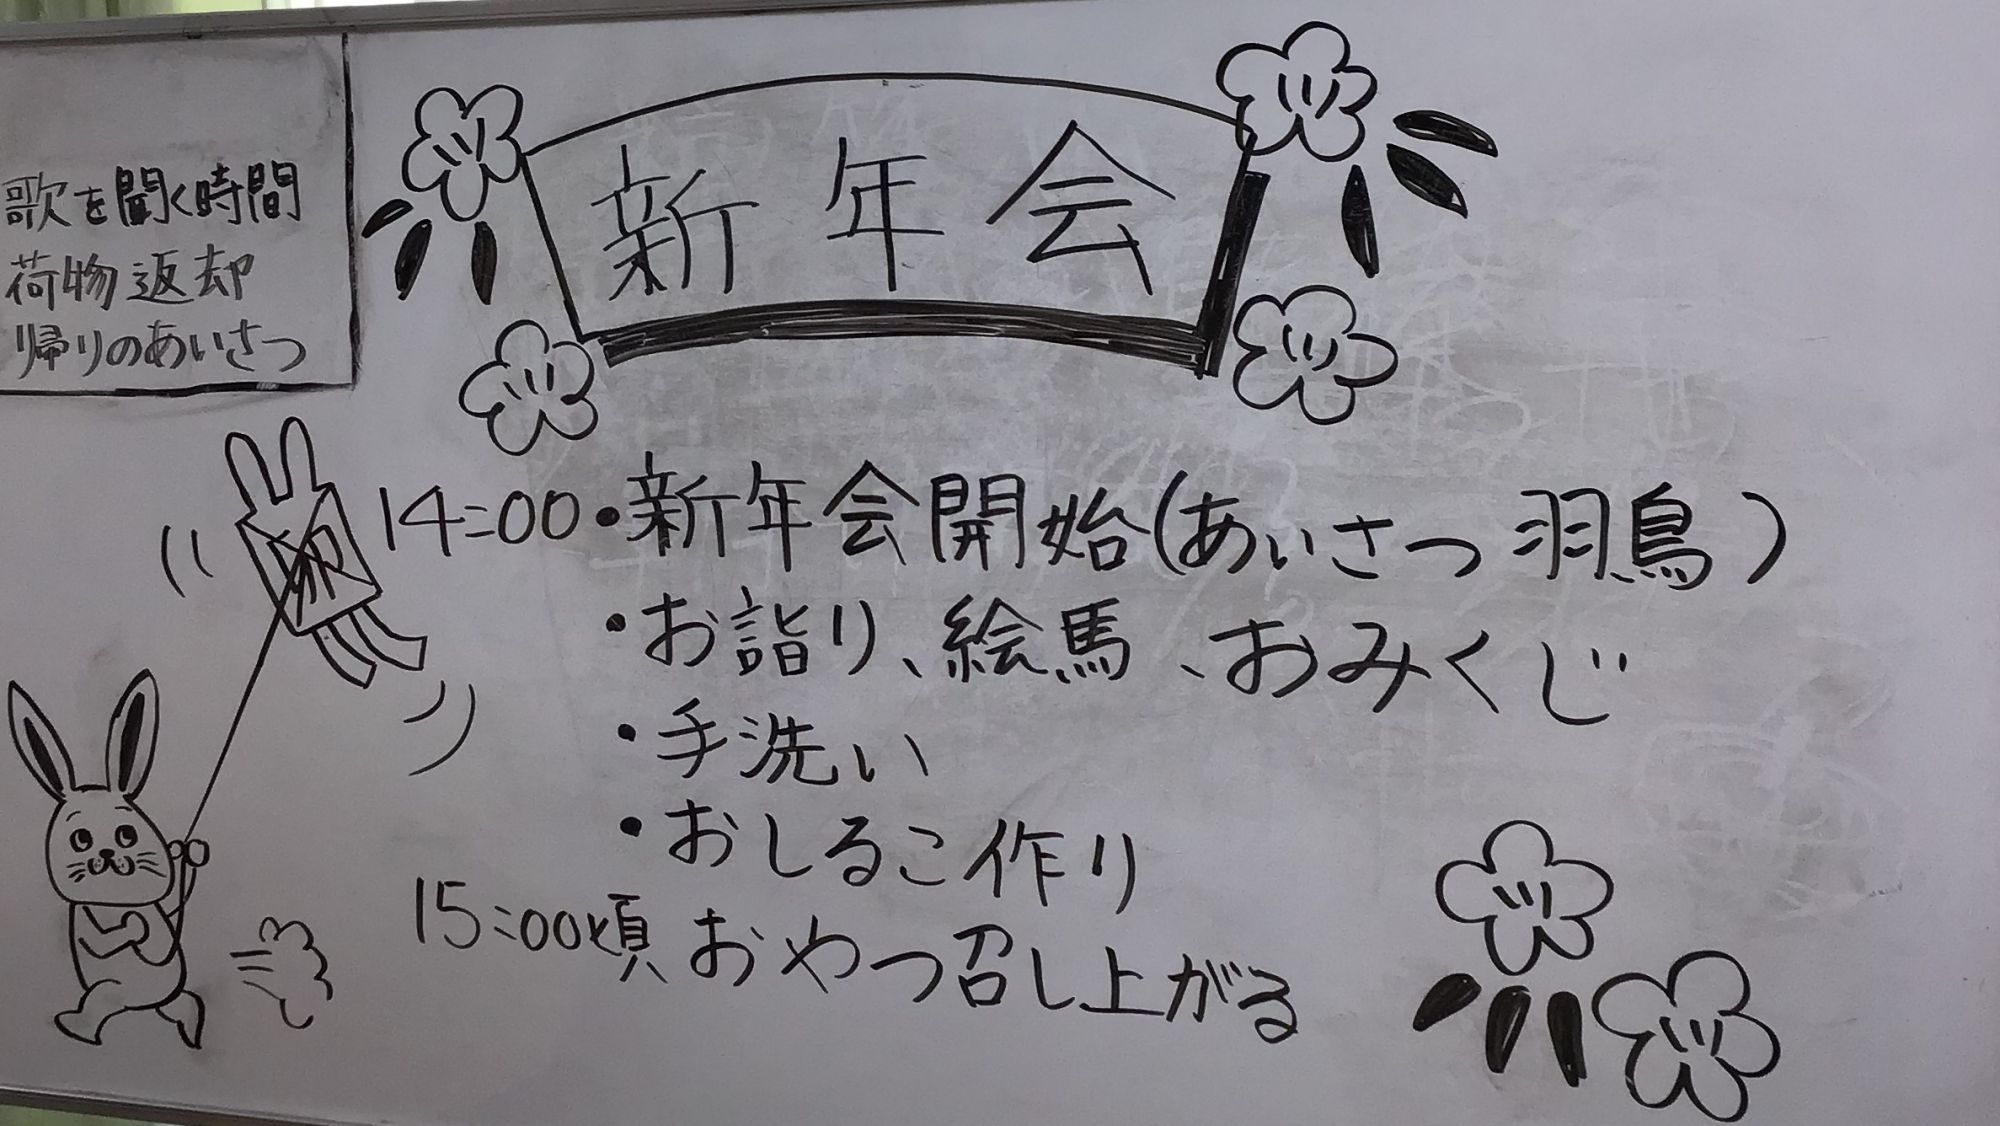 新年会
歌を聞く時間
荷物返却
帰りのあいさつ
14:00・新年会開始(あいさつ 羽鳥)
・お詣り、絵馬、おみくじ
・手洗い
・おしるこ作り
15:00頃 おやつ召し上がる